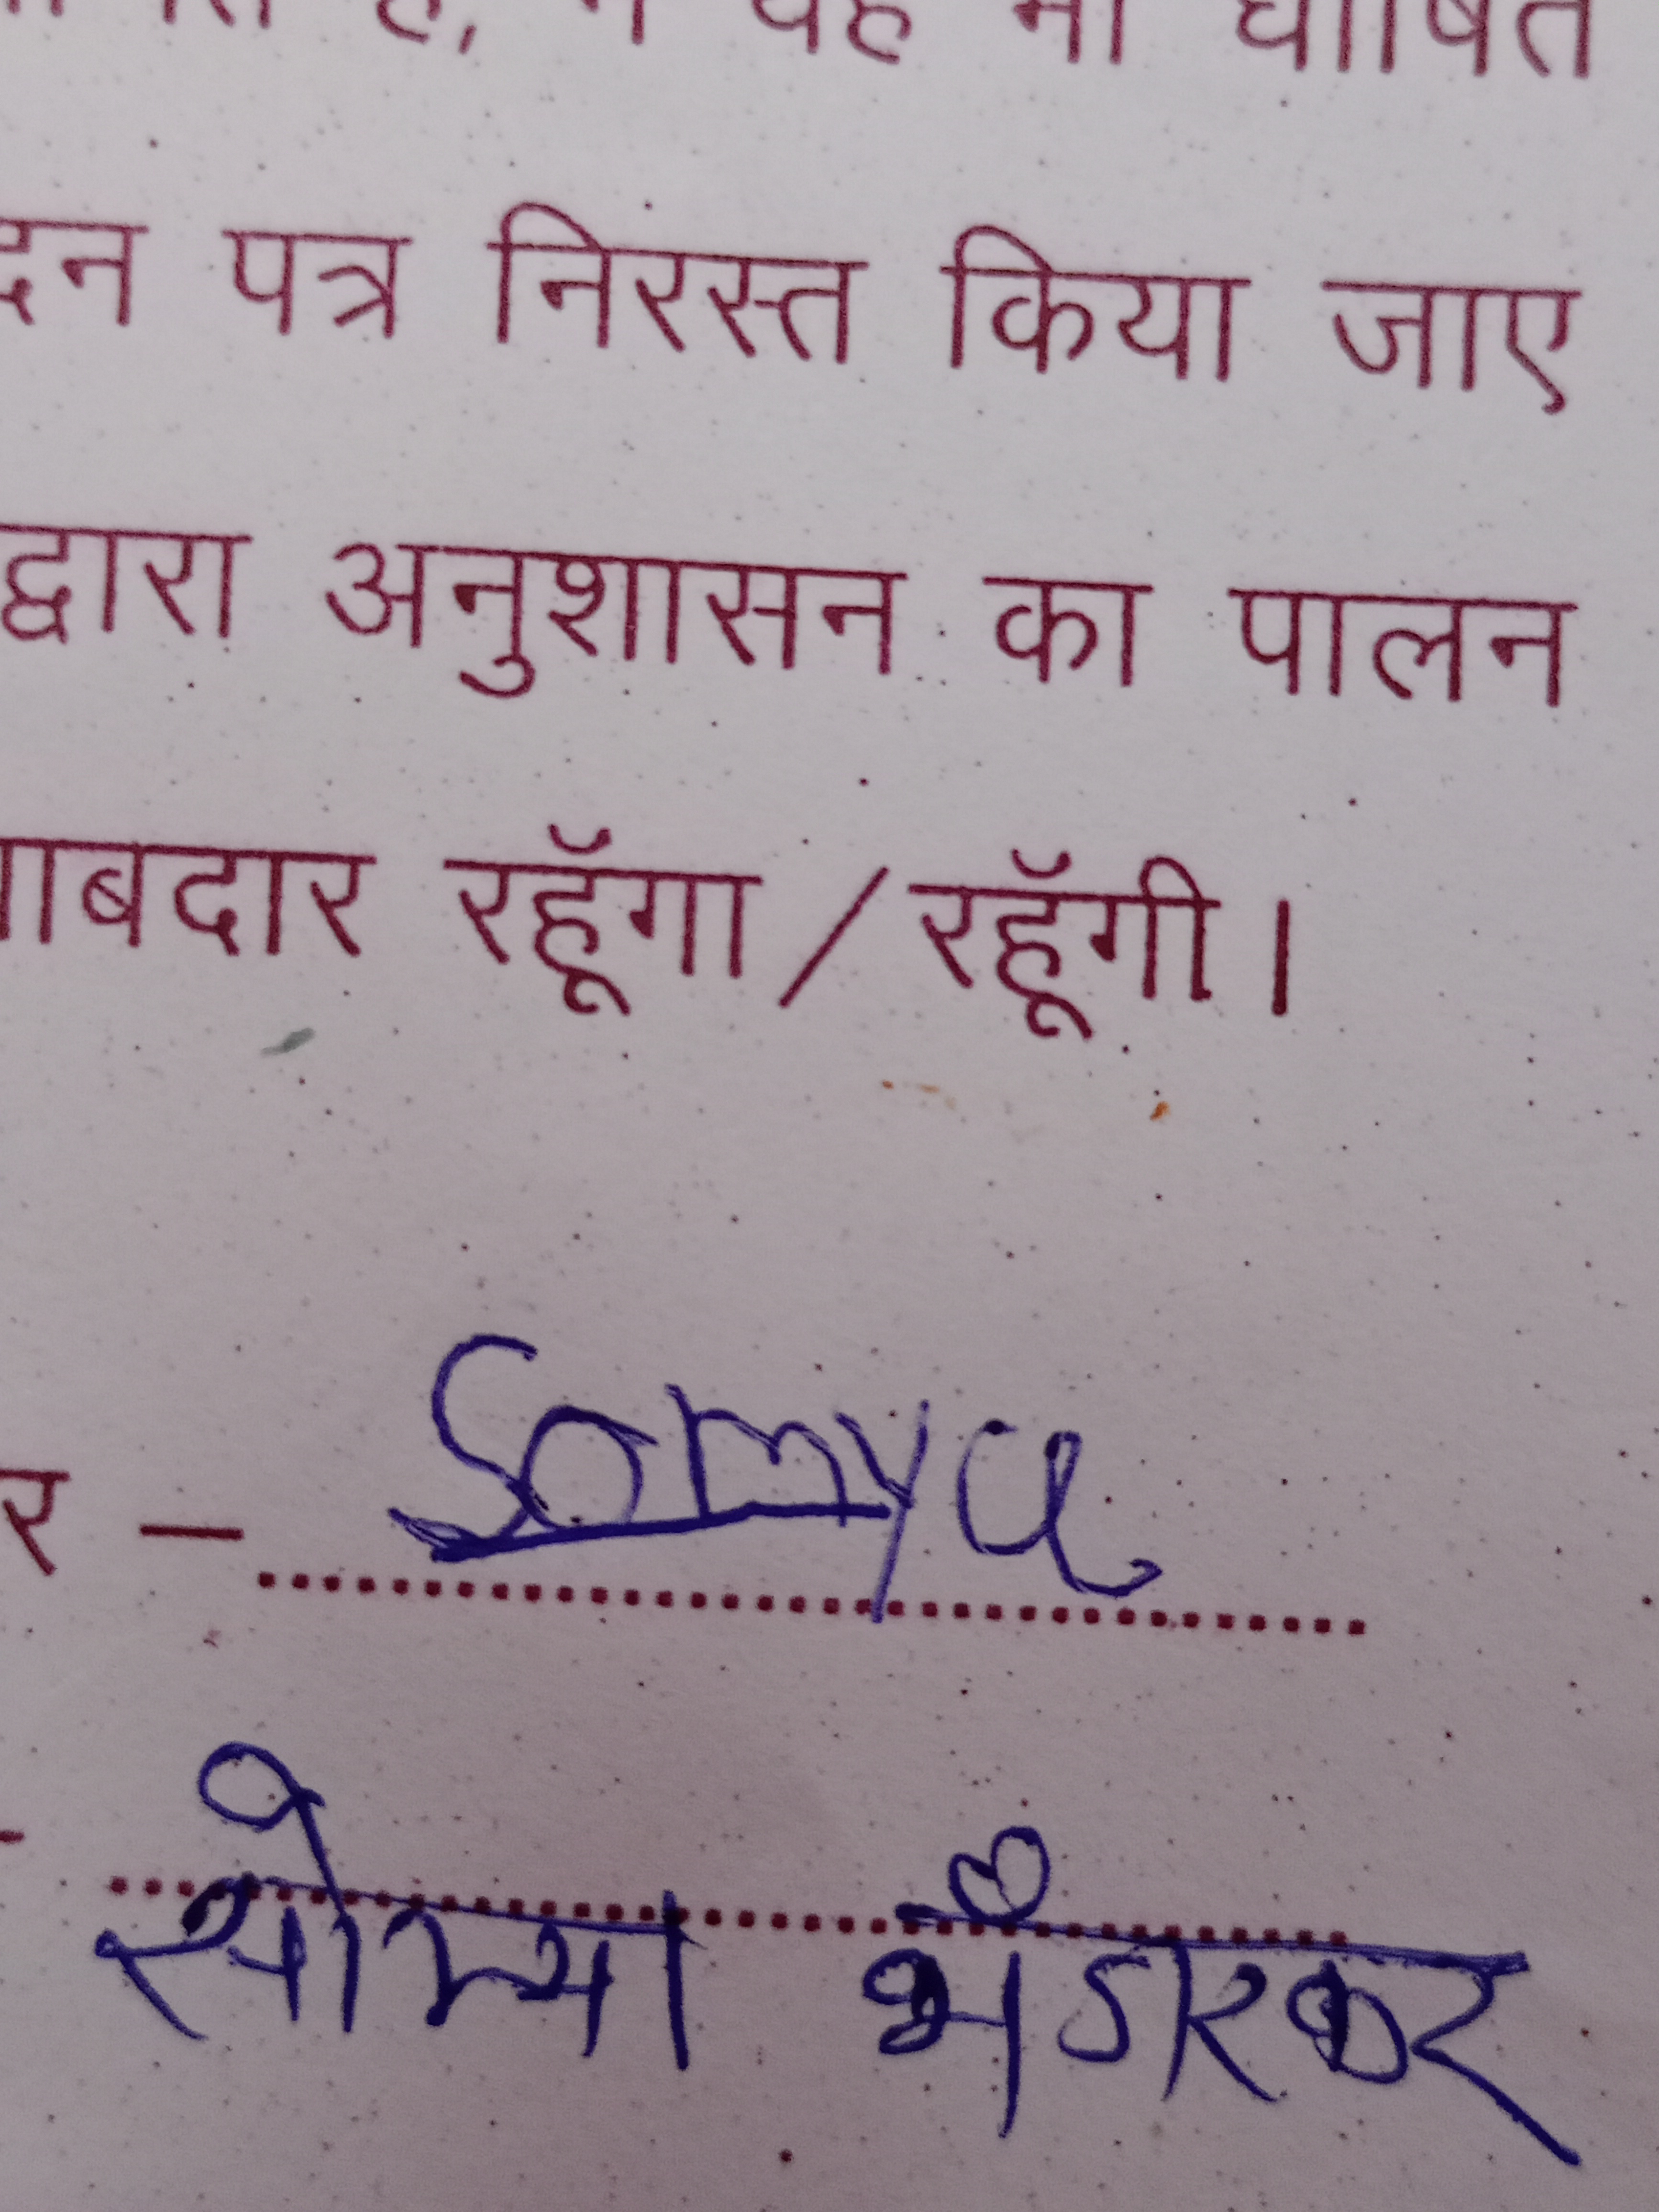 है, मैं यह भी घोषित
दन पत्र निरस्त किया जाए
द्वारा अनुशासन का पालन
ाबदार रहूँगा/रहूँगी।
र – Somya
सोम्या भँडारकर